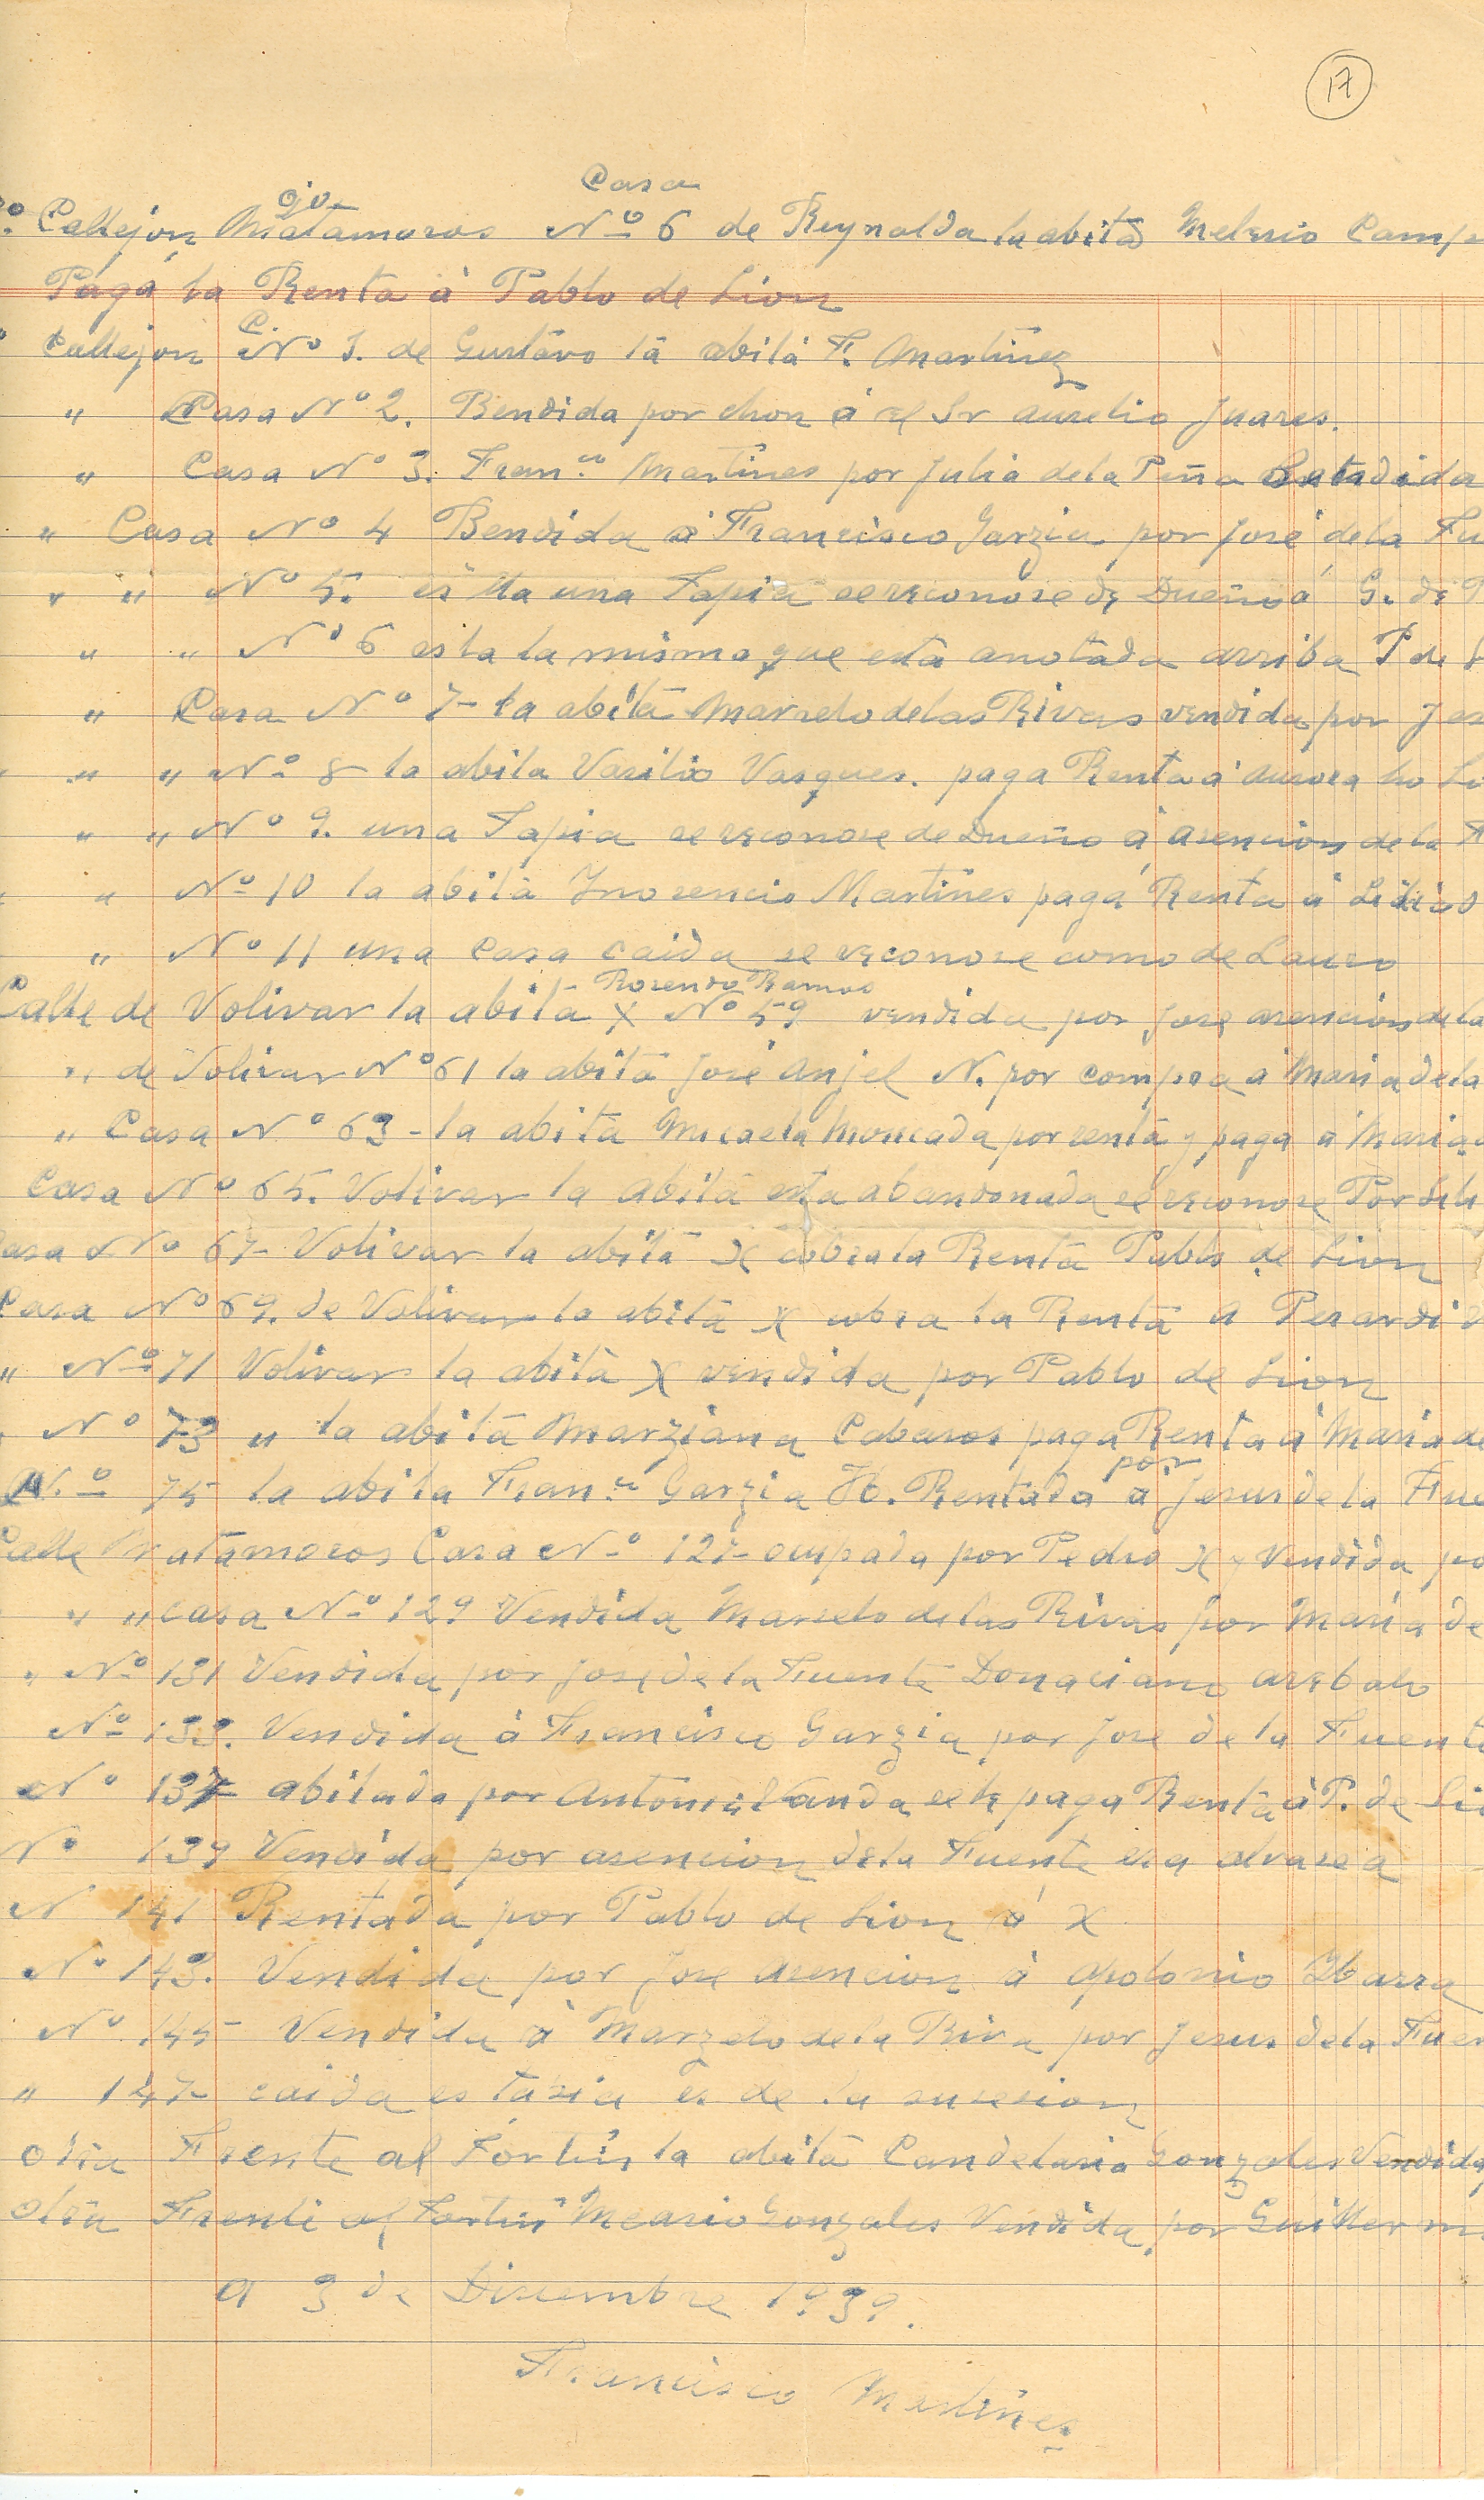 17
ojo Casa
Callejon Matamoros Nº 6 de Reynalda la abita Melesio Camp
Paga la Renta á Pablo de Lion
Callejon C. Nº 1. de Gustavo la abita F. Martinez
" Casa Nº 2. Bendida por chon á el Sr Aurelio Juares.
" Casa Nº 3. Franco Martines por Julia de la Peña
" Casa Nº 4 Bendida á Francisco Garzia por José de la Fu
" " Nº 5. es una Tapia se reconose de Dueño á G. de
" " Nº 6 es la la misma que está anotada arriba P de
" Casa Nº 7- la abita Marselo de las Rivas vendida por Jes
" " Nº 8- la abita Vasilio Vasques. paga Renta á Aurora
" " Nº 9. una Tapia se reconose de Dueño á Asencion de la F
" Nº 10 la abita Ynosencio Martines paga Renta á
" Nº 11 una Casa caida se reconose como de Lauro
Rosendo Ramos
Calle de Volivar la abita X Nº 59 vendida por Jose asencion de la
" de Volivar Nº 61 la abita José Anjel N. por compra á Maria de la
" Casa Nº 63 - la abita Micaela Moncada por renta y paga á Maria
Casa Nº 65. Volivar la abita esta abandonada se reconose Por
asa Nº 67- Volivar la abita X cobra la Renta Pablo de Lion
Casa Nº 69. de Volivar la abita X cobra la Renta A
" Nº 71 Volivar la abita X vendida por Pablo de Lion
" Nº 73 " la abita Marziana Cabasos paga Renta á Maria de
por
Nº 75 la abita Franco Garzia H. Rentada a Jesus de la Fue
Calle Matamoros Casa Nº 127- ocupada por Pedro X y Vendida po
" " casa Nº 129 Vendida Marselo de las Rivas por Maria de
" Nº 131 Vendida por José de la Fuente Donaciano arebalo
Nº 133. Vendida á Francisco Garzia por Jose de la Fuent
Nº 137 abitada por este paga Renta á P. de Li
Nº 139 Vendida por asencion de la Fuente
N 141 Rentada por Pablo de Lion á X
Nº 143. Vendida por Jose Asencion á Apolonio Ybarra
Nº 145 Vendida á Marzelo de la Riva por Jesus de la Fuen
" 147- caida esta es de la susesion
otra Frente al Fortin la abita Candelaria Gonzales Vendida
otra Frente al Fortin Gonzales Vendida por Guillerm
A 3 de Disembre 1939.
Francisco Martines